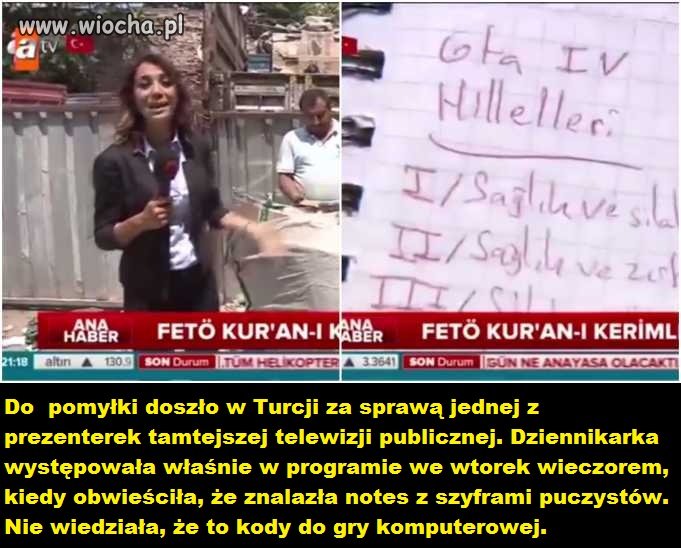 www.wiocha.pl
a tv
Gta IV
Hilleleri
I/Sağlık ve sila
II/Sağlık ve zırh
III/
ANA
HABER
FETÖ KUR'AN-I K
ANA
ABER
FETÖ KUR'AN-I KERİMLİ
21:18 altın ▲ 130.9 SON Durum TÜM HELİKOPTER
▲ 3.3641 SON Durum GÜN NE ANAYASA OLACAKTI
Do pomyłki doszło w Turcji za sprawą jednej z
prezenterek tamtejszej telewizji publicznej. Dziennikarka
występowała właśnie w programie we wtorek wieczorem,
kiedy obwieściła, że znalazła notes z szyframi puczystów.
Nie wiedziała, że to kody do gry komputerowej.